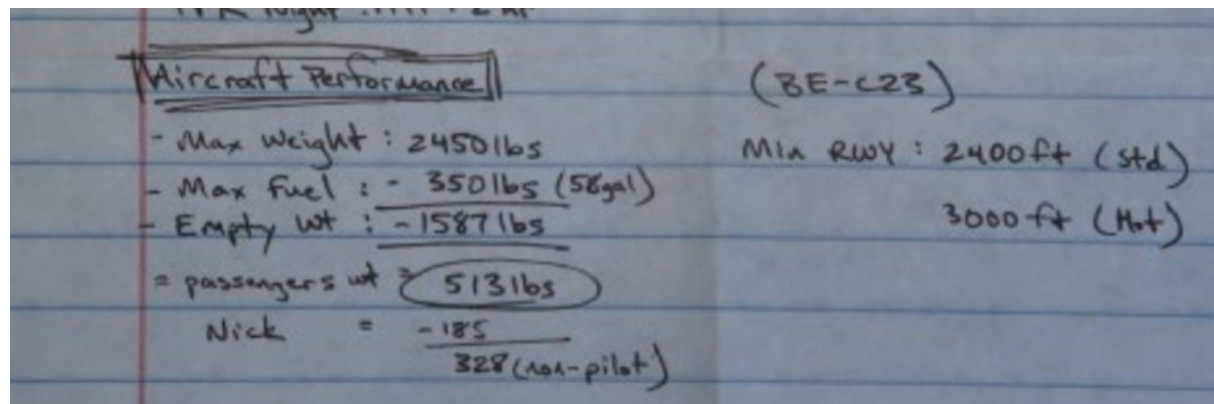 Aircraft Performance (BE-C23)
- Max Weight : 2450 lbs Min RWY : 2400 ft (std)
- Max Fuel : - 350 lbs (58gal)
- Empty Wt : - 1587 lbs 3000 ft (Hot)
= passengers wt = 513 lbs
Nick = - 185
328 (non-pilot)